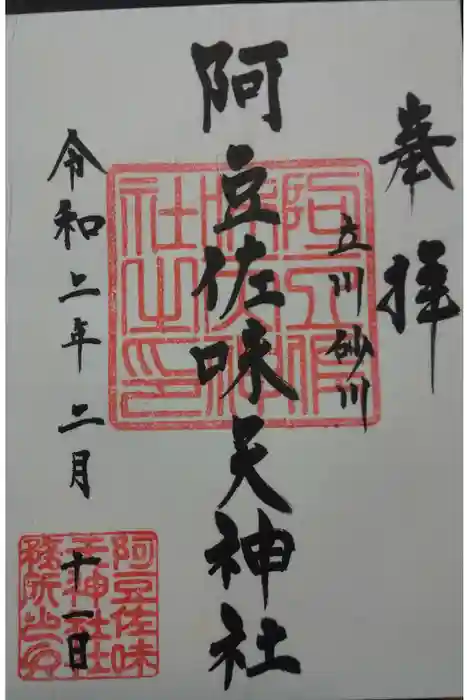 奉拝
立川砂川
阿豆佐味天神社
令和二年二月
十一日
阿豆佐味天神社之印
阿豆佐味
天神社社
務所之印